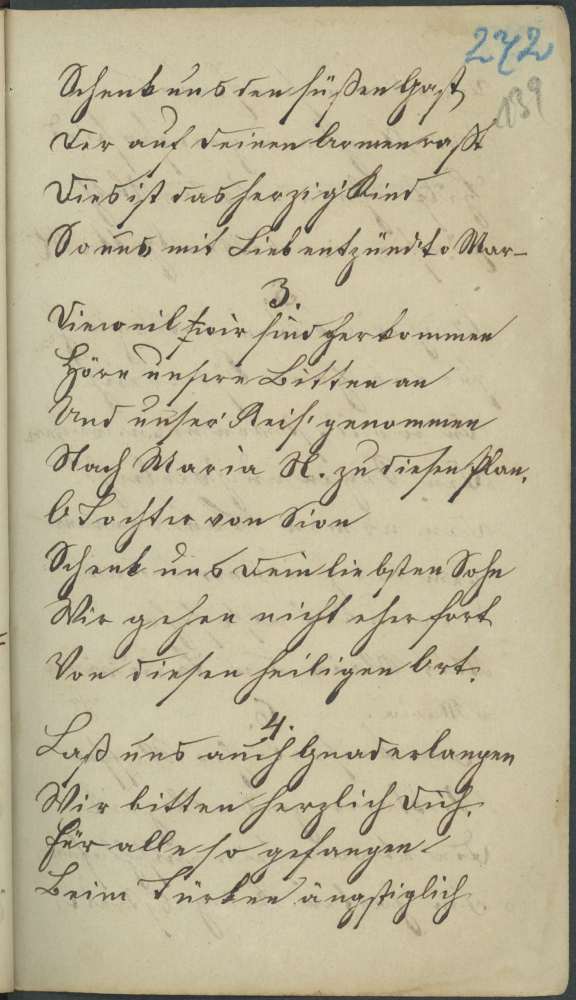 272
139
Schenk uns den süßen Gast
Der auf deinen Armen rast
Dies ist das herzig' Kind
So uns mit Lieb entzünd't o Mar-
3.
Dieweil wir sind herkommen
Höre unsere Bitten an
Und unser' Reis' genommen
Nach Maria N. zu diesen Plan.
O Tochter von Sion
Schenk uns Dein liebsten Sohn
Wir gehen nicht eher fort
Von diesen heiligen Ort.
4.
Laß uns auch Gnad erlangen
Wir bitten herzlich Dich.
Für alle so gefangen
Beim Türken ängstiglich